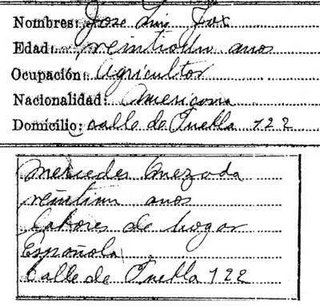 Nombres: Jose Luis Fox
Edad: veintiun anos
Ocupación: Agricultor
Nacionalidad: Americana
Domicilio: calle de Puebla 122
Mercedes Quezada
veintiun anos
Labores de hogar
Española
Calle de Puebla 122